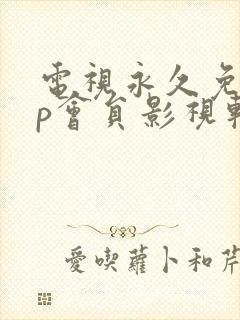 電視永久免
p會員影視軟
愛喫蘿卜和芹